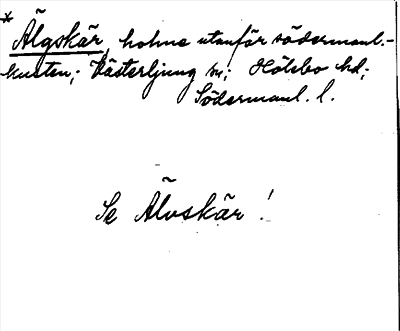 * Älgskär, holme utanför södermanl.-
kusten; Västerljung sn; Hölebo hd;
Södermanl. l.
Se Älvskär!